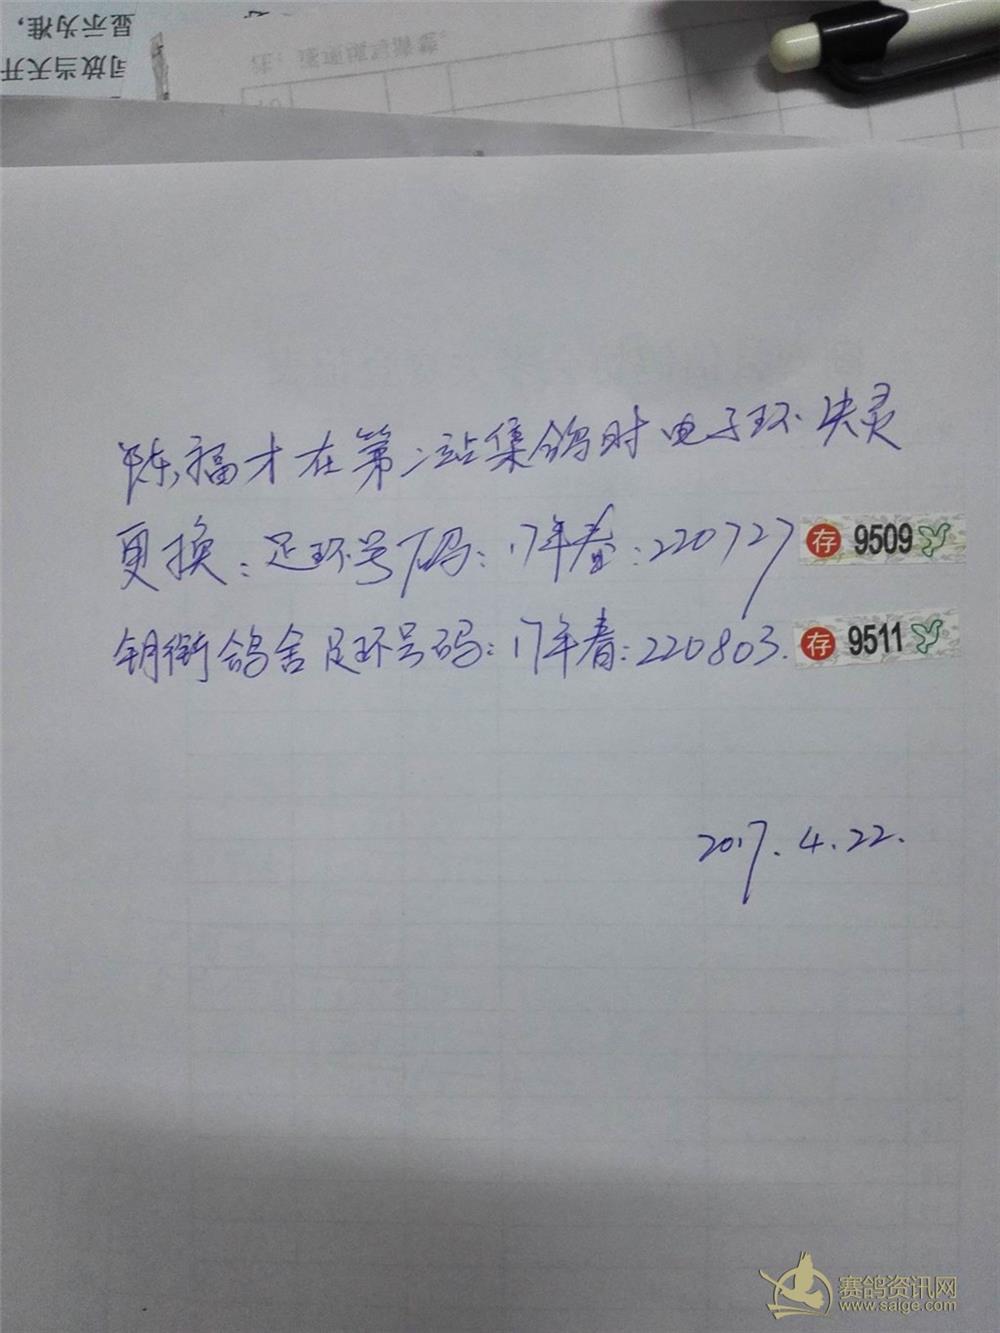 显示为准,
司放当天开
陈福才在第二站集鸽时电子环失灵
更换:足环号码:17年春:220727 存 9509
钥衔鸽舍足环号码:17年春:220803. 存 9511
2017.4.22.
赛鸽资讯网
www.saige.com